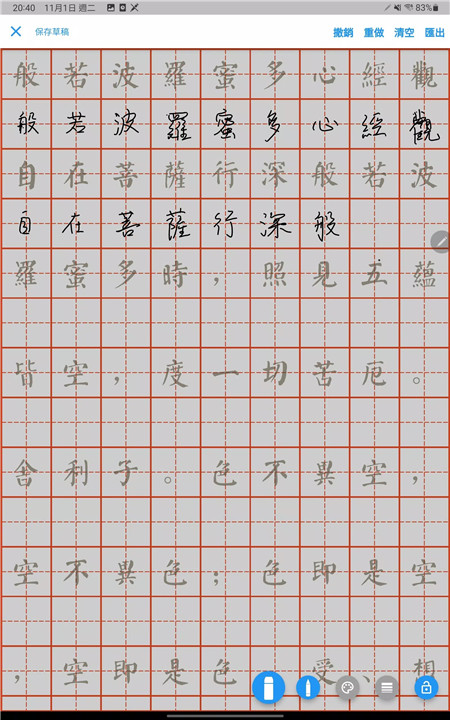 20:40 11月1日 週二 83%
保存草稿 撤銷 重做 清空 匯出
般若波羅蜜多心經觀
般若波羅蜜多心經觀
自在菩薩行深般若波
自在菩薩行深般
羅蜜多時，照見五蘊
皆空，度一切苦厄。
舍利子。色不異空，
空不異色；色即是空
，空即是色 受、想